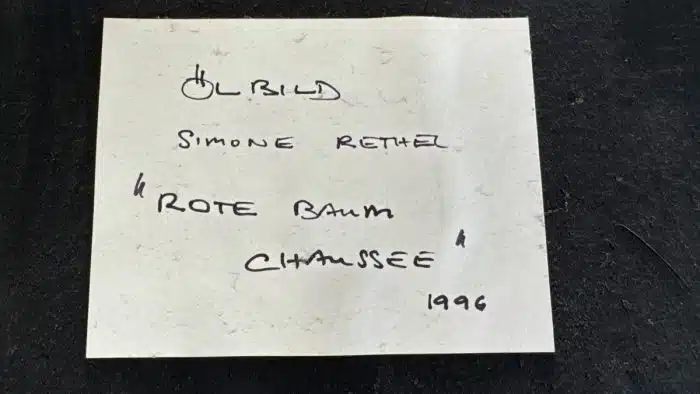 ÖLBILD
SIMONE RETHEL
"ROTE BAUM
CHAUSSEE"
1996